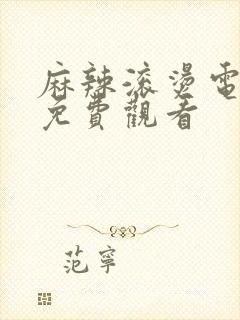 麻辣滚燙電
免費觀看
范寧